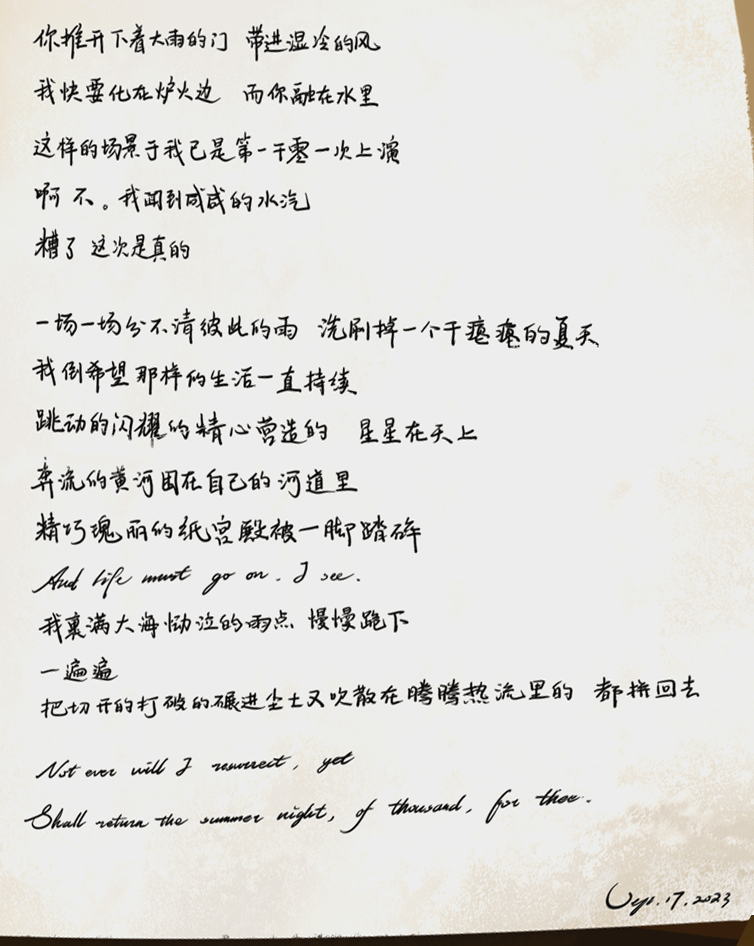 你推开下着大雨的门 带进湿冷的风
我快要化在炉火边 而你融在水里
这样的场景于我已是第一千零一次上演
啊 不。我闻到咸咸的水汽
糟了 这次是真的
一场一场分不清彼此的雨 洗刷掉一个干瘪瘪的夏天
我倒希望那样的生活一直持续
跳动的闪耀的精心营造的 星星在天上
奔流的黄河困在自己的河道里
精巧瑰丽的纸宫殿被一脚踏碎
And life must go on. I see.
我裹满大海恸泣的雨点 慢慢跪下
一遍遍
把切开的打破的碾进尘土又吹散在腾腾热流里的 都拼回去
Not ever will I resurrect, yet
Shall return the summer night, of thousand, for thee.
17.2023